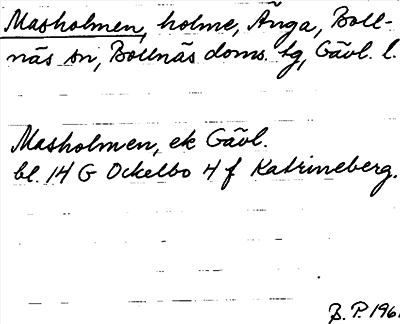 Masholmen, holme, Änga, Boll-
näs sn, Bollnäs doms. tg, Gävl. l.
Masholmen, ek Gävl.
bl. 14 G Ockelbo 4 f Katrineberg.
B. P. 196